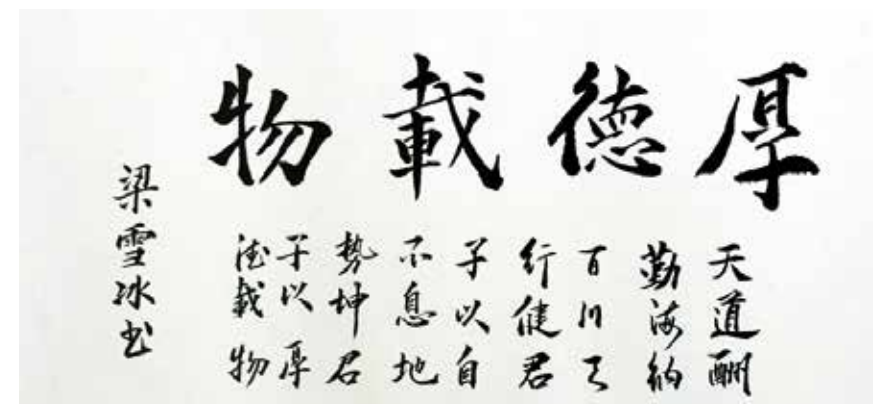 厚德載物
天道酬
勤海納
百川天
行健君
子以自
不息地
勢坤君
子以厚
德載物
梁雪冰书